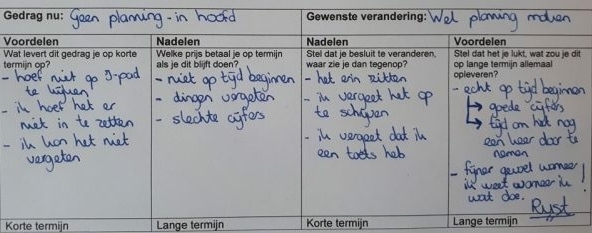 Gedrag nu: Geen planning - in hoofd
Gewenste verandering: Wel planning maken
Voordelen
Wat levert dit gedrag je op korte
termijn op?
- hoef niet op I-pad
te kijken
- ik hoef het er
niet in te zetten
- ik kon het niet
vergeten
Korte termijn
Nadelen
Welke prijs betaal je op termijn
als je dit blijft doen?
- niet op tijd beginnen
- dingen vergeten
- slechte cijfers
Lange termijn
Nadelen
Stel dat je besluit te veranderen,
waar zie je dan tegenop?
- het erin zetten
- ik vergeet het op
te schrijven
- ik vergeet dat ik
een toets heb
Korte termijn
Voordelen
Stel dat het je lukt, wat zou je dit
op lange termijn allemaal
opleveren?
- echt op tijd beginnen
goede cijfers
tijd om het nog
een keer door te
nemen
- fijner gevoel wanneer
ik weet wanneer ik
wat doe. !
Rust
Lange termijn